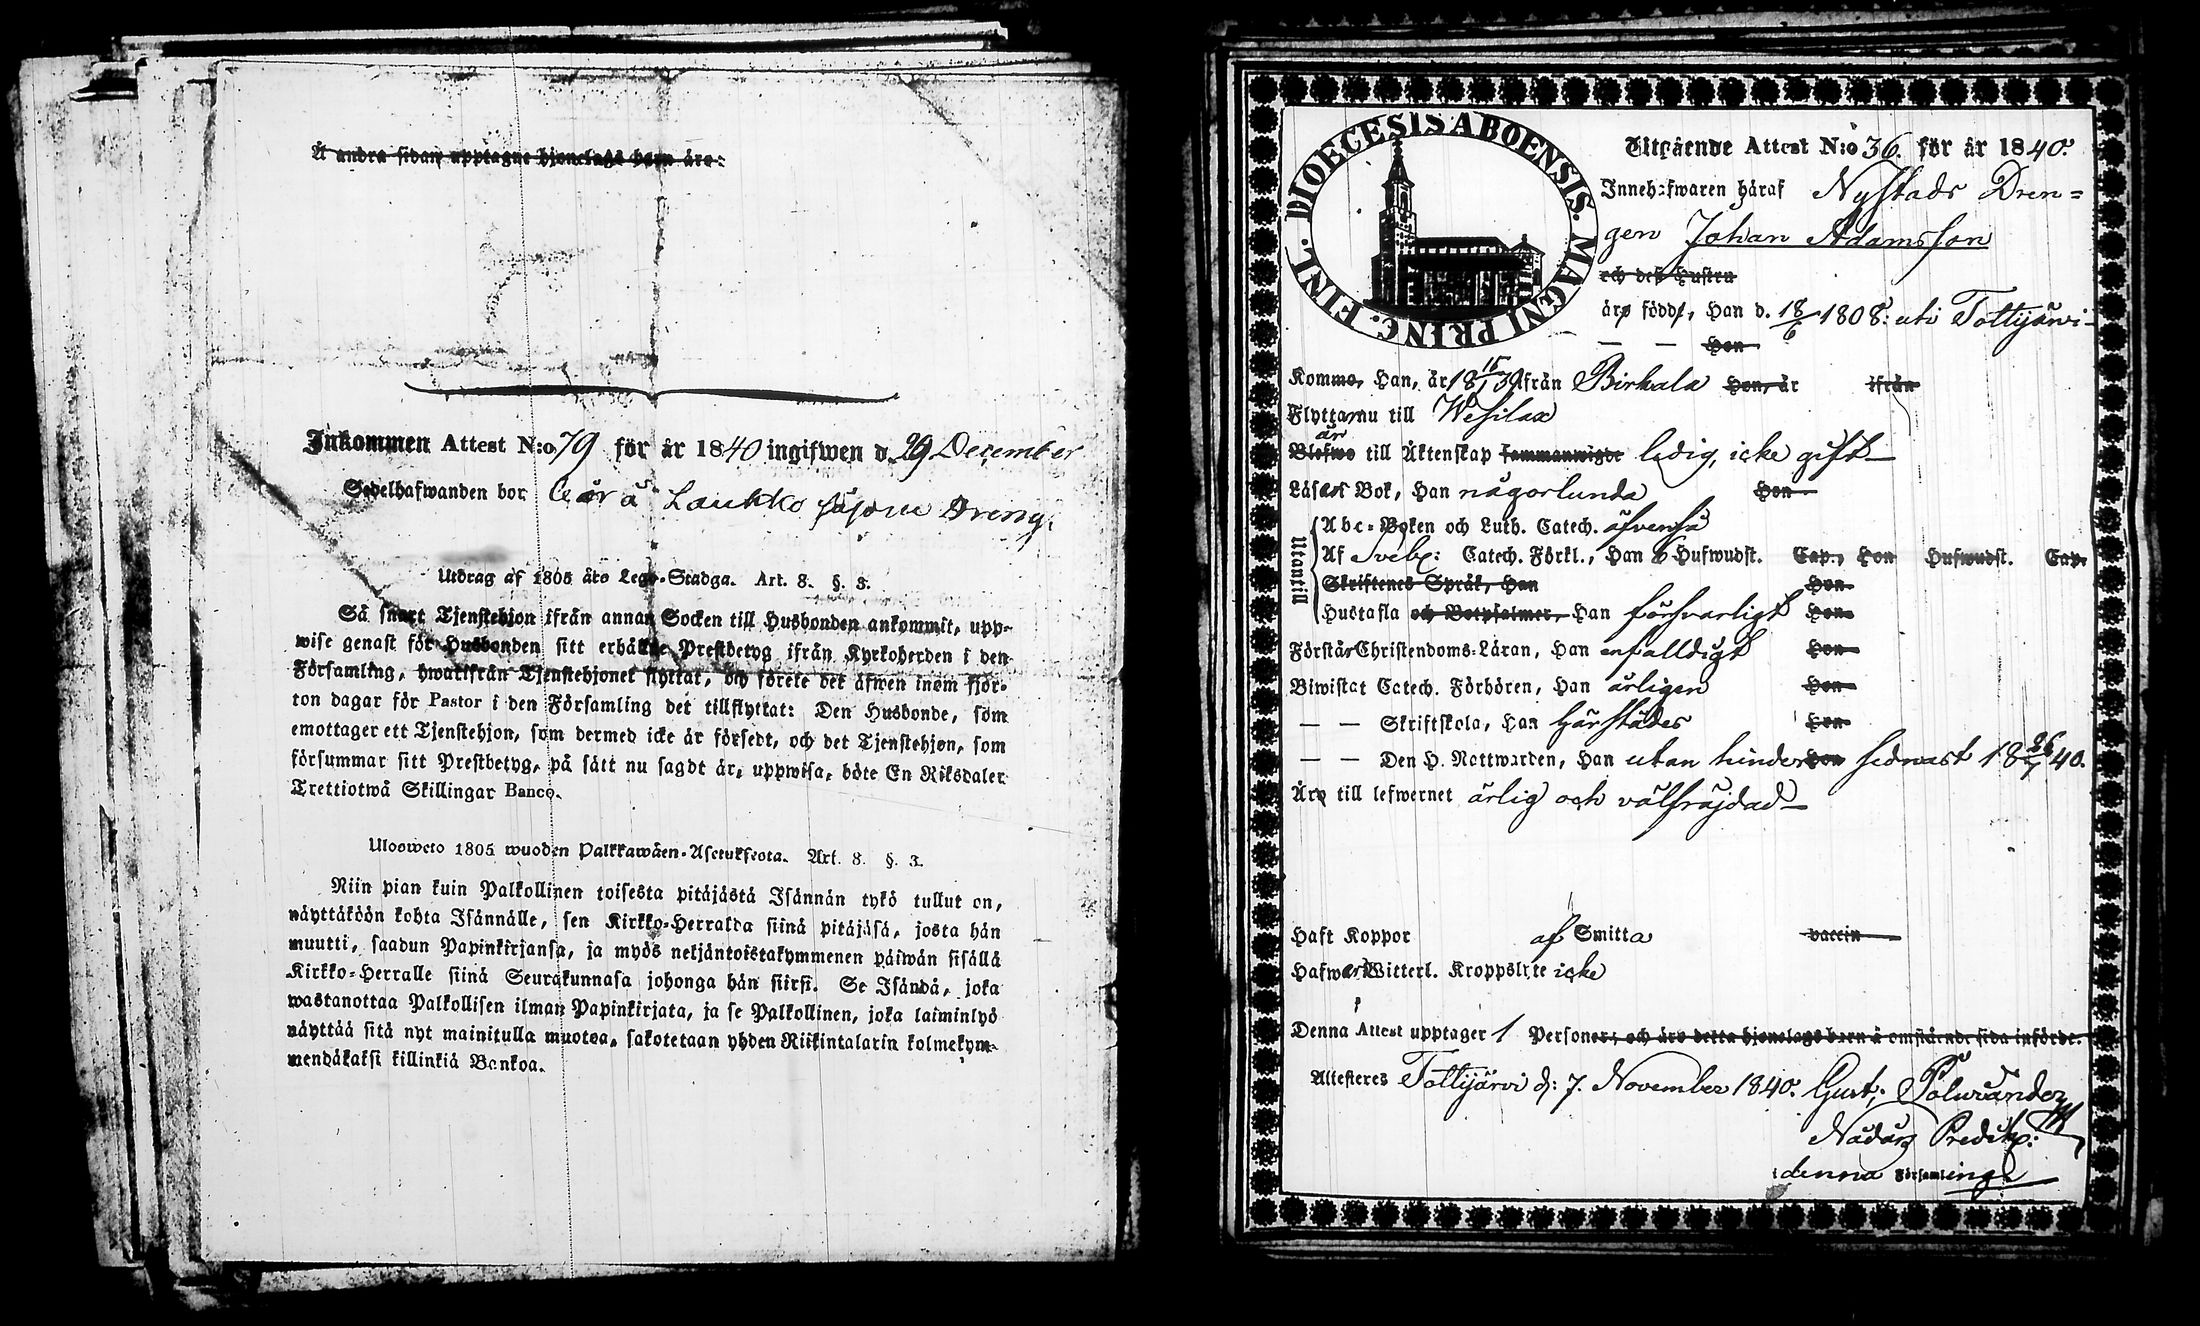 Å andra sidan upptagne hjonelags barn äro:
Inkommen Attest N:o 79 för år 1840 ingifwen d. 29 December
Sedelhafwanden bor å Laukko såsom Dreng.
Utdrag af 1805 års Lego-Stadga. Art. 8. §. 3.
Så snart Tjenstehjon ifrån annan Socken till Husbonden ankommit, upp-
wise genast för Husbonden sitt erhållne Prestbetyg ifrån Kyrkoherden i den
Församling, hwarifrån Tjenstehjonet flyttat, och förete det äfwen inom fjor-
ton dagar för Pastor i den Församling det tillflyttat: Den Husbonde, som
emottager ett Tjenstehjon, som dermed icke är försedt, och det Tjenstehjon, som
försummar sitt Prestbetyg, på sätt nu sagdt är, uppwisa, böte En Riksdaler
Trettiotwå Skillingar Banco.
Ulosweto 1805 wuoden Palkkawäen-Asetuksesta. Art. 8. §. 3.
Niin pian kuin Palkollinen toisesta pitäjästä Isännän tykö tullut on,
näyttäköön kohta Isännälle, sen Kirkko-Herralda siinä pitäjäsä, josta hän
muutti, saadun Papinkirjansa, ja myös neljäntoistakymmenen päiwän sisällä
Kirkko-Herralle siinä Seurakunnasa johonga hän siirsi. Se Isändä, joka
wastanottaa Palkollisen ilman Papinkirjata, ja se Palkollinen, joka laiminlyö
näyttää sitä nyt mainitulla muotoa, sakotetaan yhden Riikintalarin kolmekym-
mendäkaksi killinkiä Bankoa.
DIOECESIS ABOENSIS. MAGNI PRINC. FINL.
Utgående Attest N:o 36. för år 1840.
Innehafwaren häraf Nystads Dren=
gen Johan Adamsson
och dess hustru
äro födde, Han d. 18/6 1808: uti Tottijärvi
— — Hon
Kommo, Han, år 18 15/1 39 ifrån Birkala Hon, år ifrån
Flyttar nu till Wesilax
är
Blefwo till Äktenskap sammanwigde ledig, icke gift
Läser i Bok, Han någorlunda Hon
Utantill
Abc-Boken och Luth. Catech. äfvenså
Af Sveb: Catech. Förkl., Han 6 Hufwudst. Cap., Hon Hufwudst. Cap.
Skriftenes Språk, Han Hon
Hustafla och Botpsalmer, Han försvarligt Hon
Förstår Christendoms-Läran, Han enfalldigt Hon
Biwistat Catech. Förhören, Han årligen Hon
— — Skriftskola, Han härstädes Hon
— — Den H. Nattwarden, Han utan hinder Hon sednast 18 26/7 40.
Äro till lefwernet ärlig och välfräjdad
Haft Koppor af Smitta vaccin
Hafwer Witterl. Kroppslyte icke
Denna Attest upptager 1 Personer, och äro detta hjonelags barn å omstående sida införde.
Attesteres Tottijärvi d: 7. November 1840. Gust:
Nådårs Predik:
denna Församling